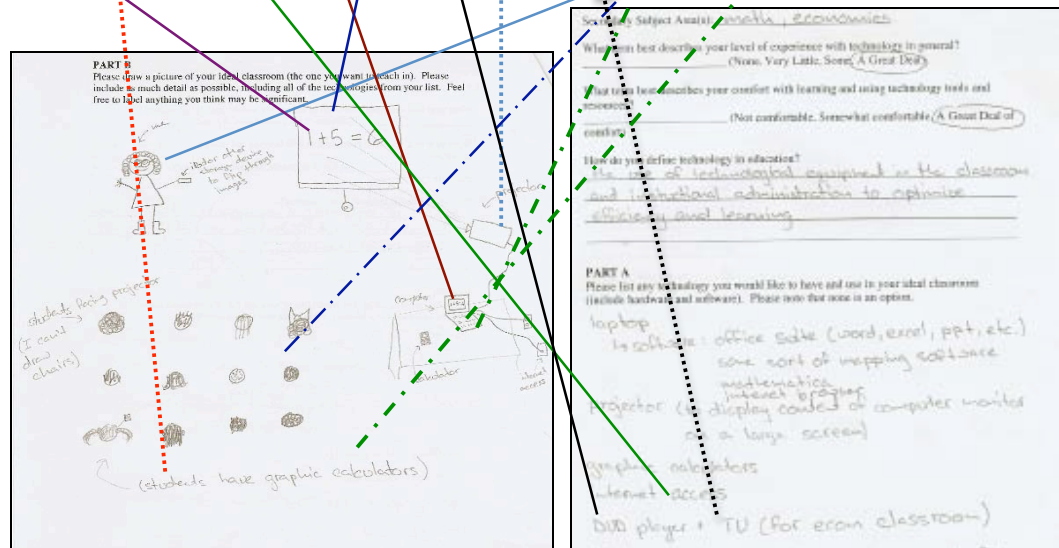 PART B
Please draw a picture of your ideal classroom (the one you want to teach in). Please
include as much detail as possible, including all of the technologies from your list. Feel
free to label anything you think may be significant.
me
1+5=6
to flip through
images
projector
students facing projector
(I can't
draw
chairs)
computer
calculator
internet
access
(students have graphic calculators)
Secondary Subject Area(s): math, economics
What term best describes your level of experience with technology in general?
(None, Very Little, Some, A Great Deal)
What term best describes your comfort with learning and using technology tools and
resources?
(Not comfortable, Somewhat comfortable, A Great Deal of
comfort)
How do you define technology in education?
the use of technological equipment in the classroom
and instructional administration to optimize
efficiency and learning
PART A
Please list any technology you would like to have and use in your ideal classroom
(include hardware and software). Please note that none is an option.
laptop
software: office suite (word, excel, ppt, etc.)
some sort of mapping software
mathematica
internet browser
projector (to display content of computer monitor
on a large screen)
graphic calculators
internet access
DVD player + TV (for econ classroom)